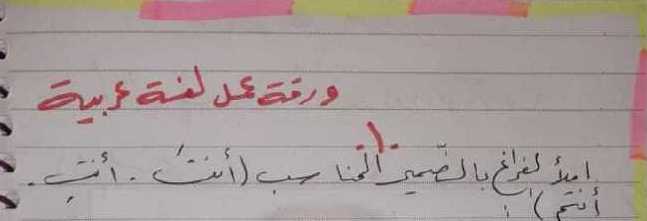 ورقة عمل لغة عربية
١.
املأ الفراغ بالضمير المناسب (أنتَ . أنتِ .
أنتم) :